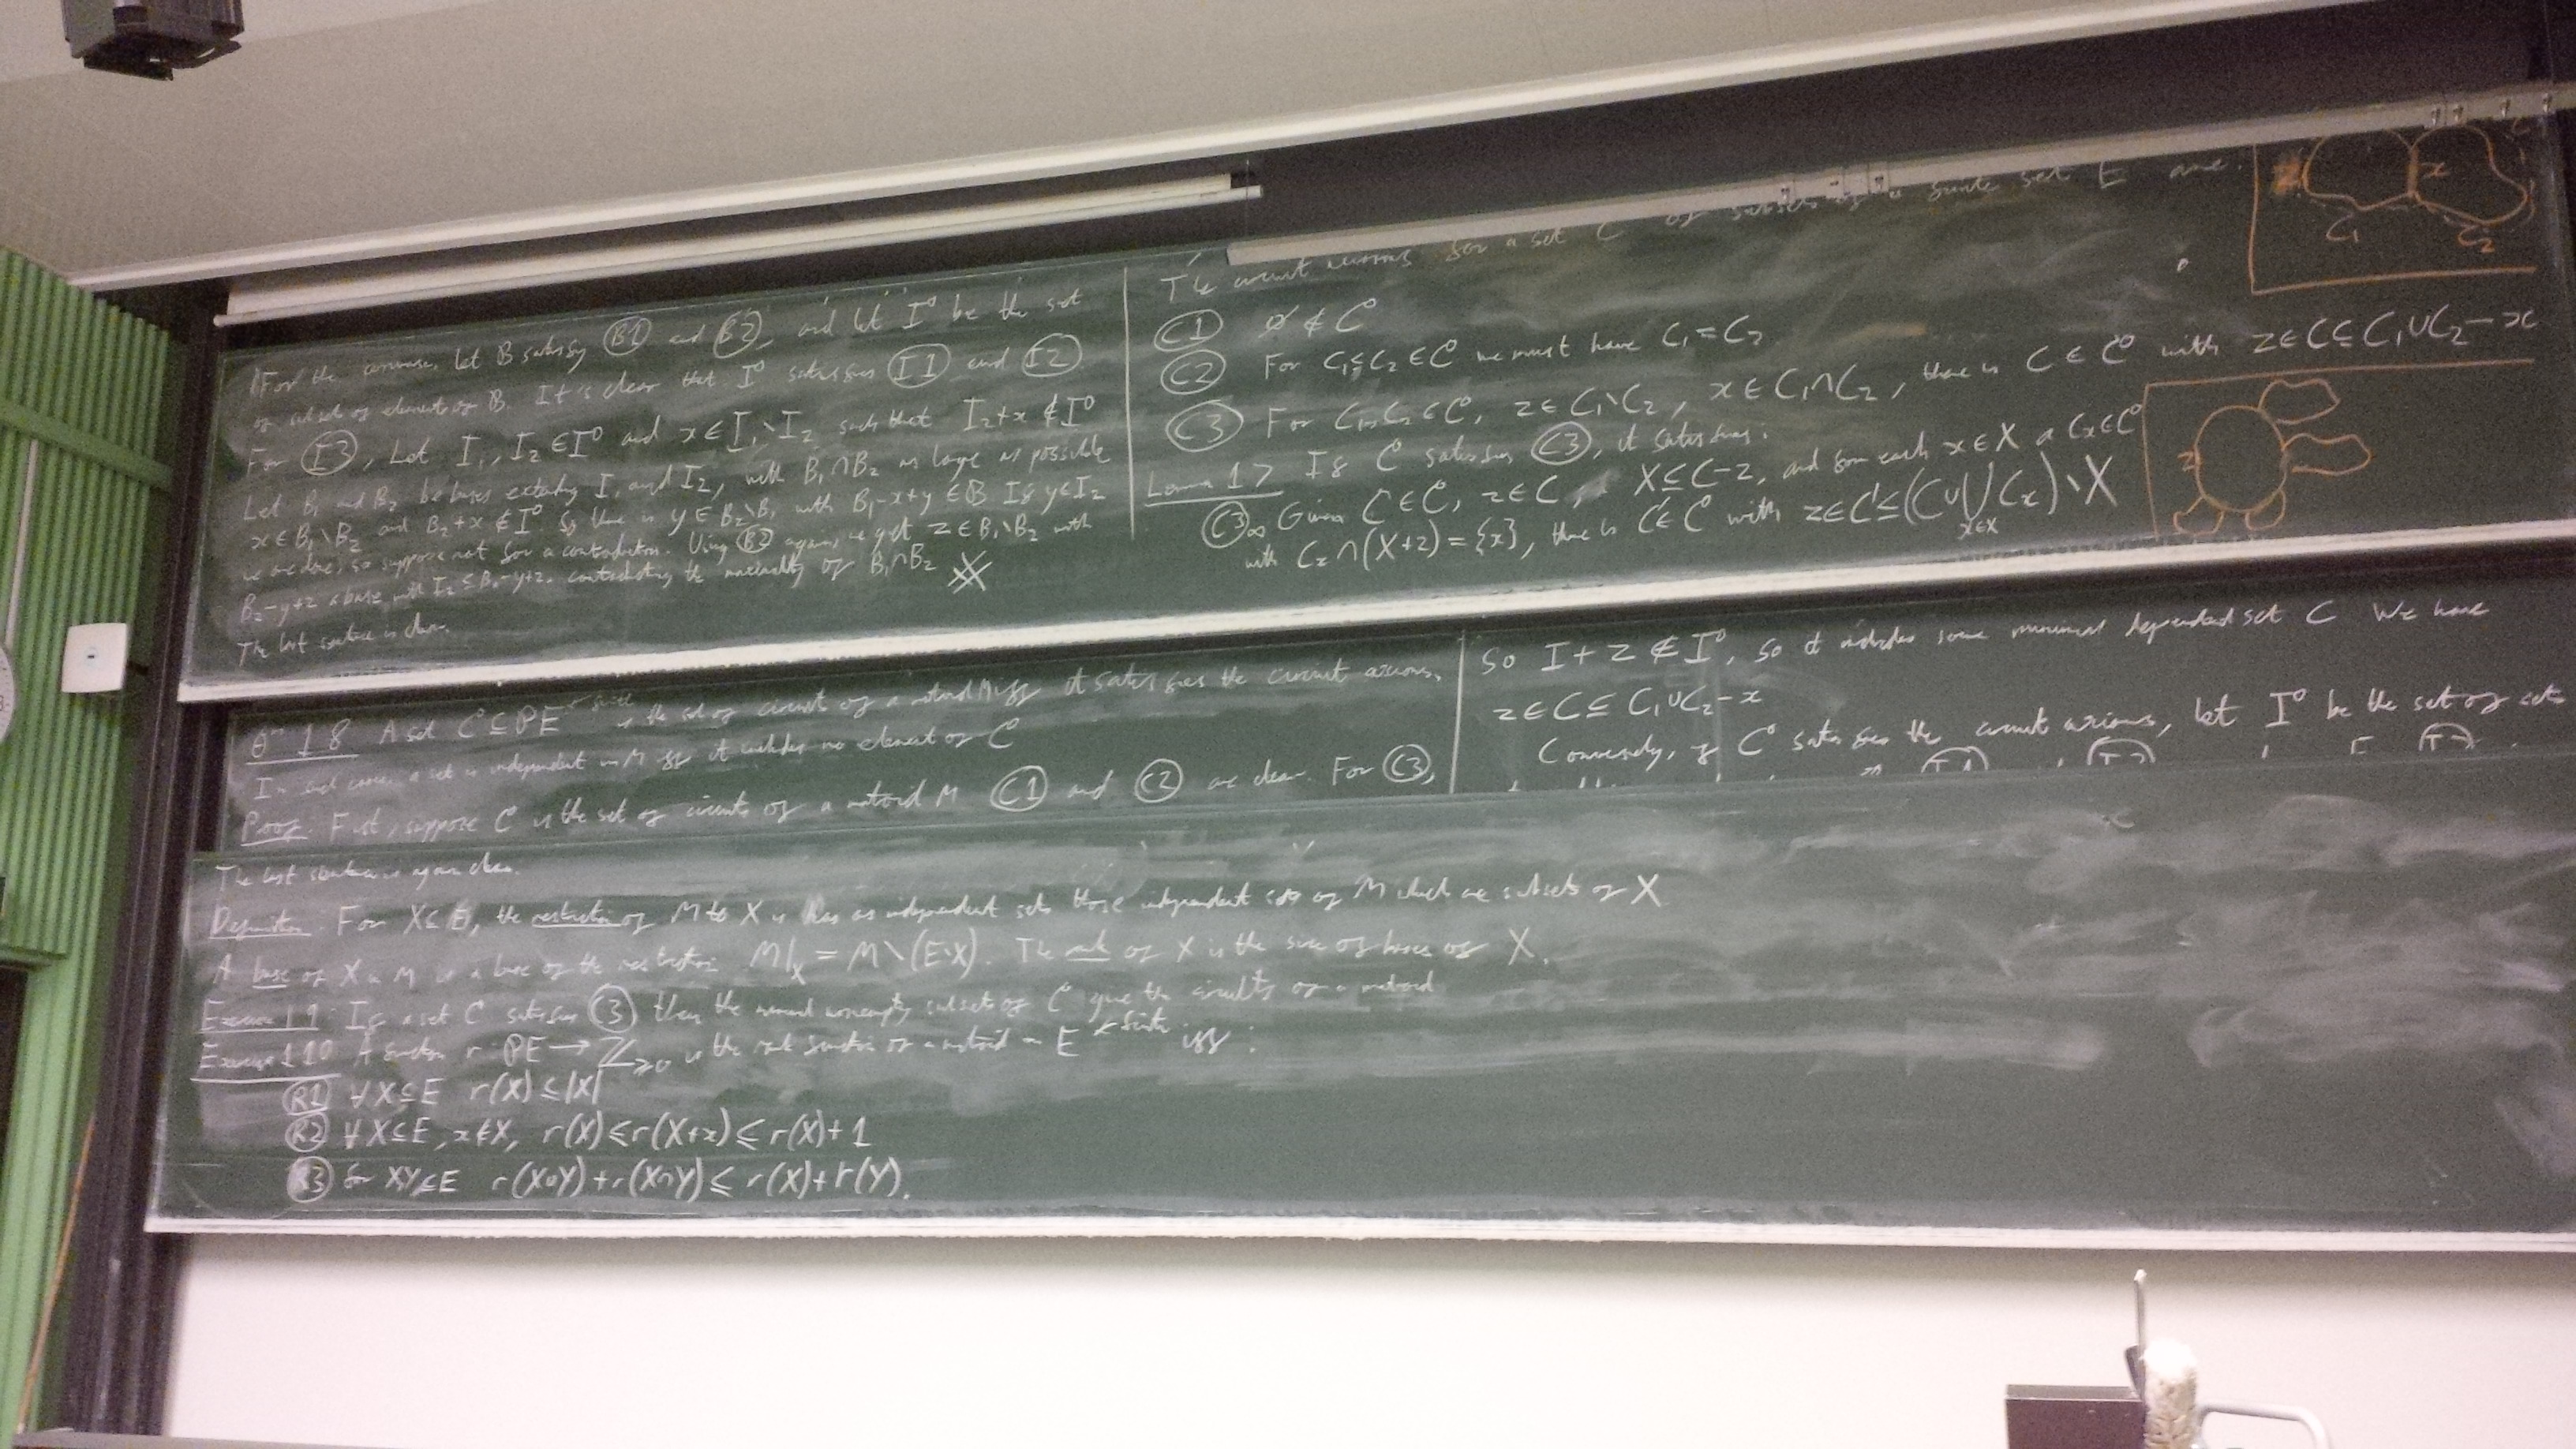 For the converse, let B satisfy (B1) and (B2), and let I be the set
of subsets of elements of B. It is clear that I satisfies (I1) and (I2)
For (I3), Let I₁, I₂ ∈ I and x ∈ I₁∖I₂ such that I₂+x ∉ I
Let B₁ and B₂ be bases extending I₁ and I₂, with B₁∩B₂ as large as possible
x ∈ B₁∖B₂ and B₂+x ∉ I. So there is y ∈ B₂∖B₁ with B₁-x+y ∈ B. If y∈I₂
we are done, so suppose not for a contradiction. Using (B2) again, we get z ∈ B₁∖B₂ with
B₂-y+z a base with I₂ ⊆ B₂-y+z, contradicting the maximality of B₁∩B₂
The last sentence is clear.
The circuit axioms for a set C of subsets of a finite set E are:
(C1) ∅ ∉ C
(C2) For C₁⊆C₂ ∈ C we must have C₁=C₂
(C3) For C₁,C₂ ∈ C, z∈C₁∖C₂, x∈C₁∩C₂, there is C ∈ C with z∈C⊆C₁∪C₂-x
Lemma 1.7 If C satisfies (C3), it satisfies:
(C3)∞ Given C∈C, z∈C, X⊆C-z, and for each x∈X a Cₓ∈C
with Cₓ∩(X+z)={x}, there is C'∈C with z∈C'⊆(C∪⋃Cₓ)∖X
x∈X
x
C₁ C₂
z
1.8 A set C ⊆ PE finite is the set of circuits of a matroid M iff it satisfies the circuit axioms.
In such cases a set is independent in M iff it includes no element of C
Proof. First, suppose C is the set of circuits of a matroid M (C1) and (C2) are clear. For (C3),
So I+z ∉ I, so it includes some minimal dependent set C We have
z∈C⊆C₁∪C₂-x
Conversely, if C satisfies the circuit axioms, let I be the set of sets
The last sentence is again clear.
Definition. For X⊆E, the restriction of M to X has as independent sets those independent sets of M which are subsets of X
A base of X in M is a base of the restriction M|ₓ = M∖(E∖X). The rank of X is the size of bases of X.
Exercise 1.9 If a set C satisfies (C3) then the minimal nonempty subsets of C give the circuits of a matroid
Exercise 1.10 A function r: PE → Z≥0 is the rank function of a matroid on E finite iff:
(R1) ∀X⊆E r(X) ≤ |X|
(R2) ∀X⊆E, x∉X, r(X) ≤ r(X+x) ≤ r(X)+1
(R3) for X,Y⊆E r(X∪Y)+r(X∩Y) ≤ r(X)+r(Y).